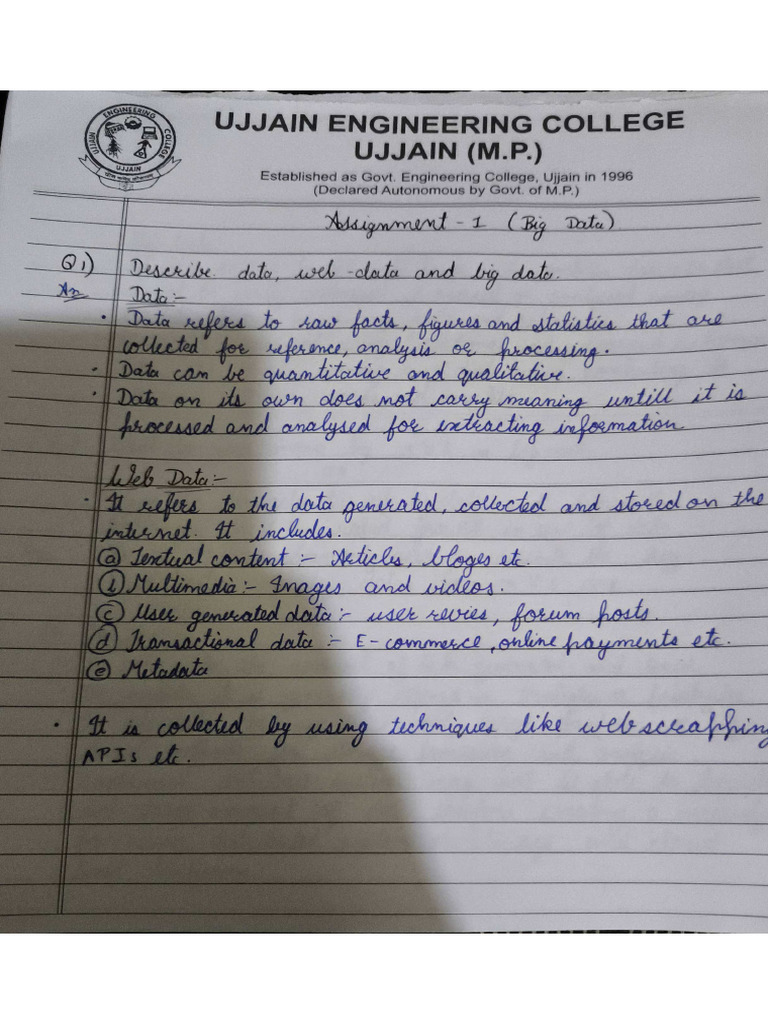 ENGINEERING
UJJAIN
COLLEGE
UJJAIN
UJJAIN ENGINEERING COLLEGE
UJJAIN (M.P.)
Established as Govt. Engineering College, Ujjain in 1996
(Declared Autonomous by Govt. of M.P.)
Assignment - 1 (Big Data)
Q1) Describe data, web-data and big data.
An Data:-
• Data refers to raw facts, figures and statistics that are
collected for reference, analysis or processing.
• Data can be quantitative and qualitative.
• Data on its own does not carry meaning untill it is
processed and analysed for extracting information.
Web Data:-
• It refers to the data generated, collected and stored on the
internet. It includes.
(a) Textual content :- Articles, bloges etc.
(b) Multimedia :- Images and videos.
(c) User generated data :- user revies, forum posts.
(d) Transactional data :- E-commerce, online payments etc.
(e) Metadata
• It is collected by using techniques like web scrapping
APIs etc.